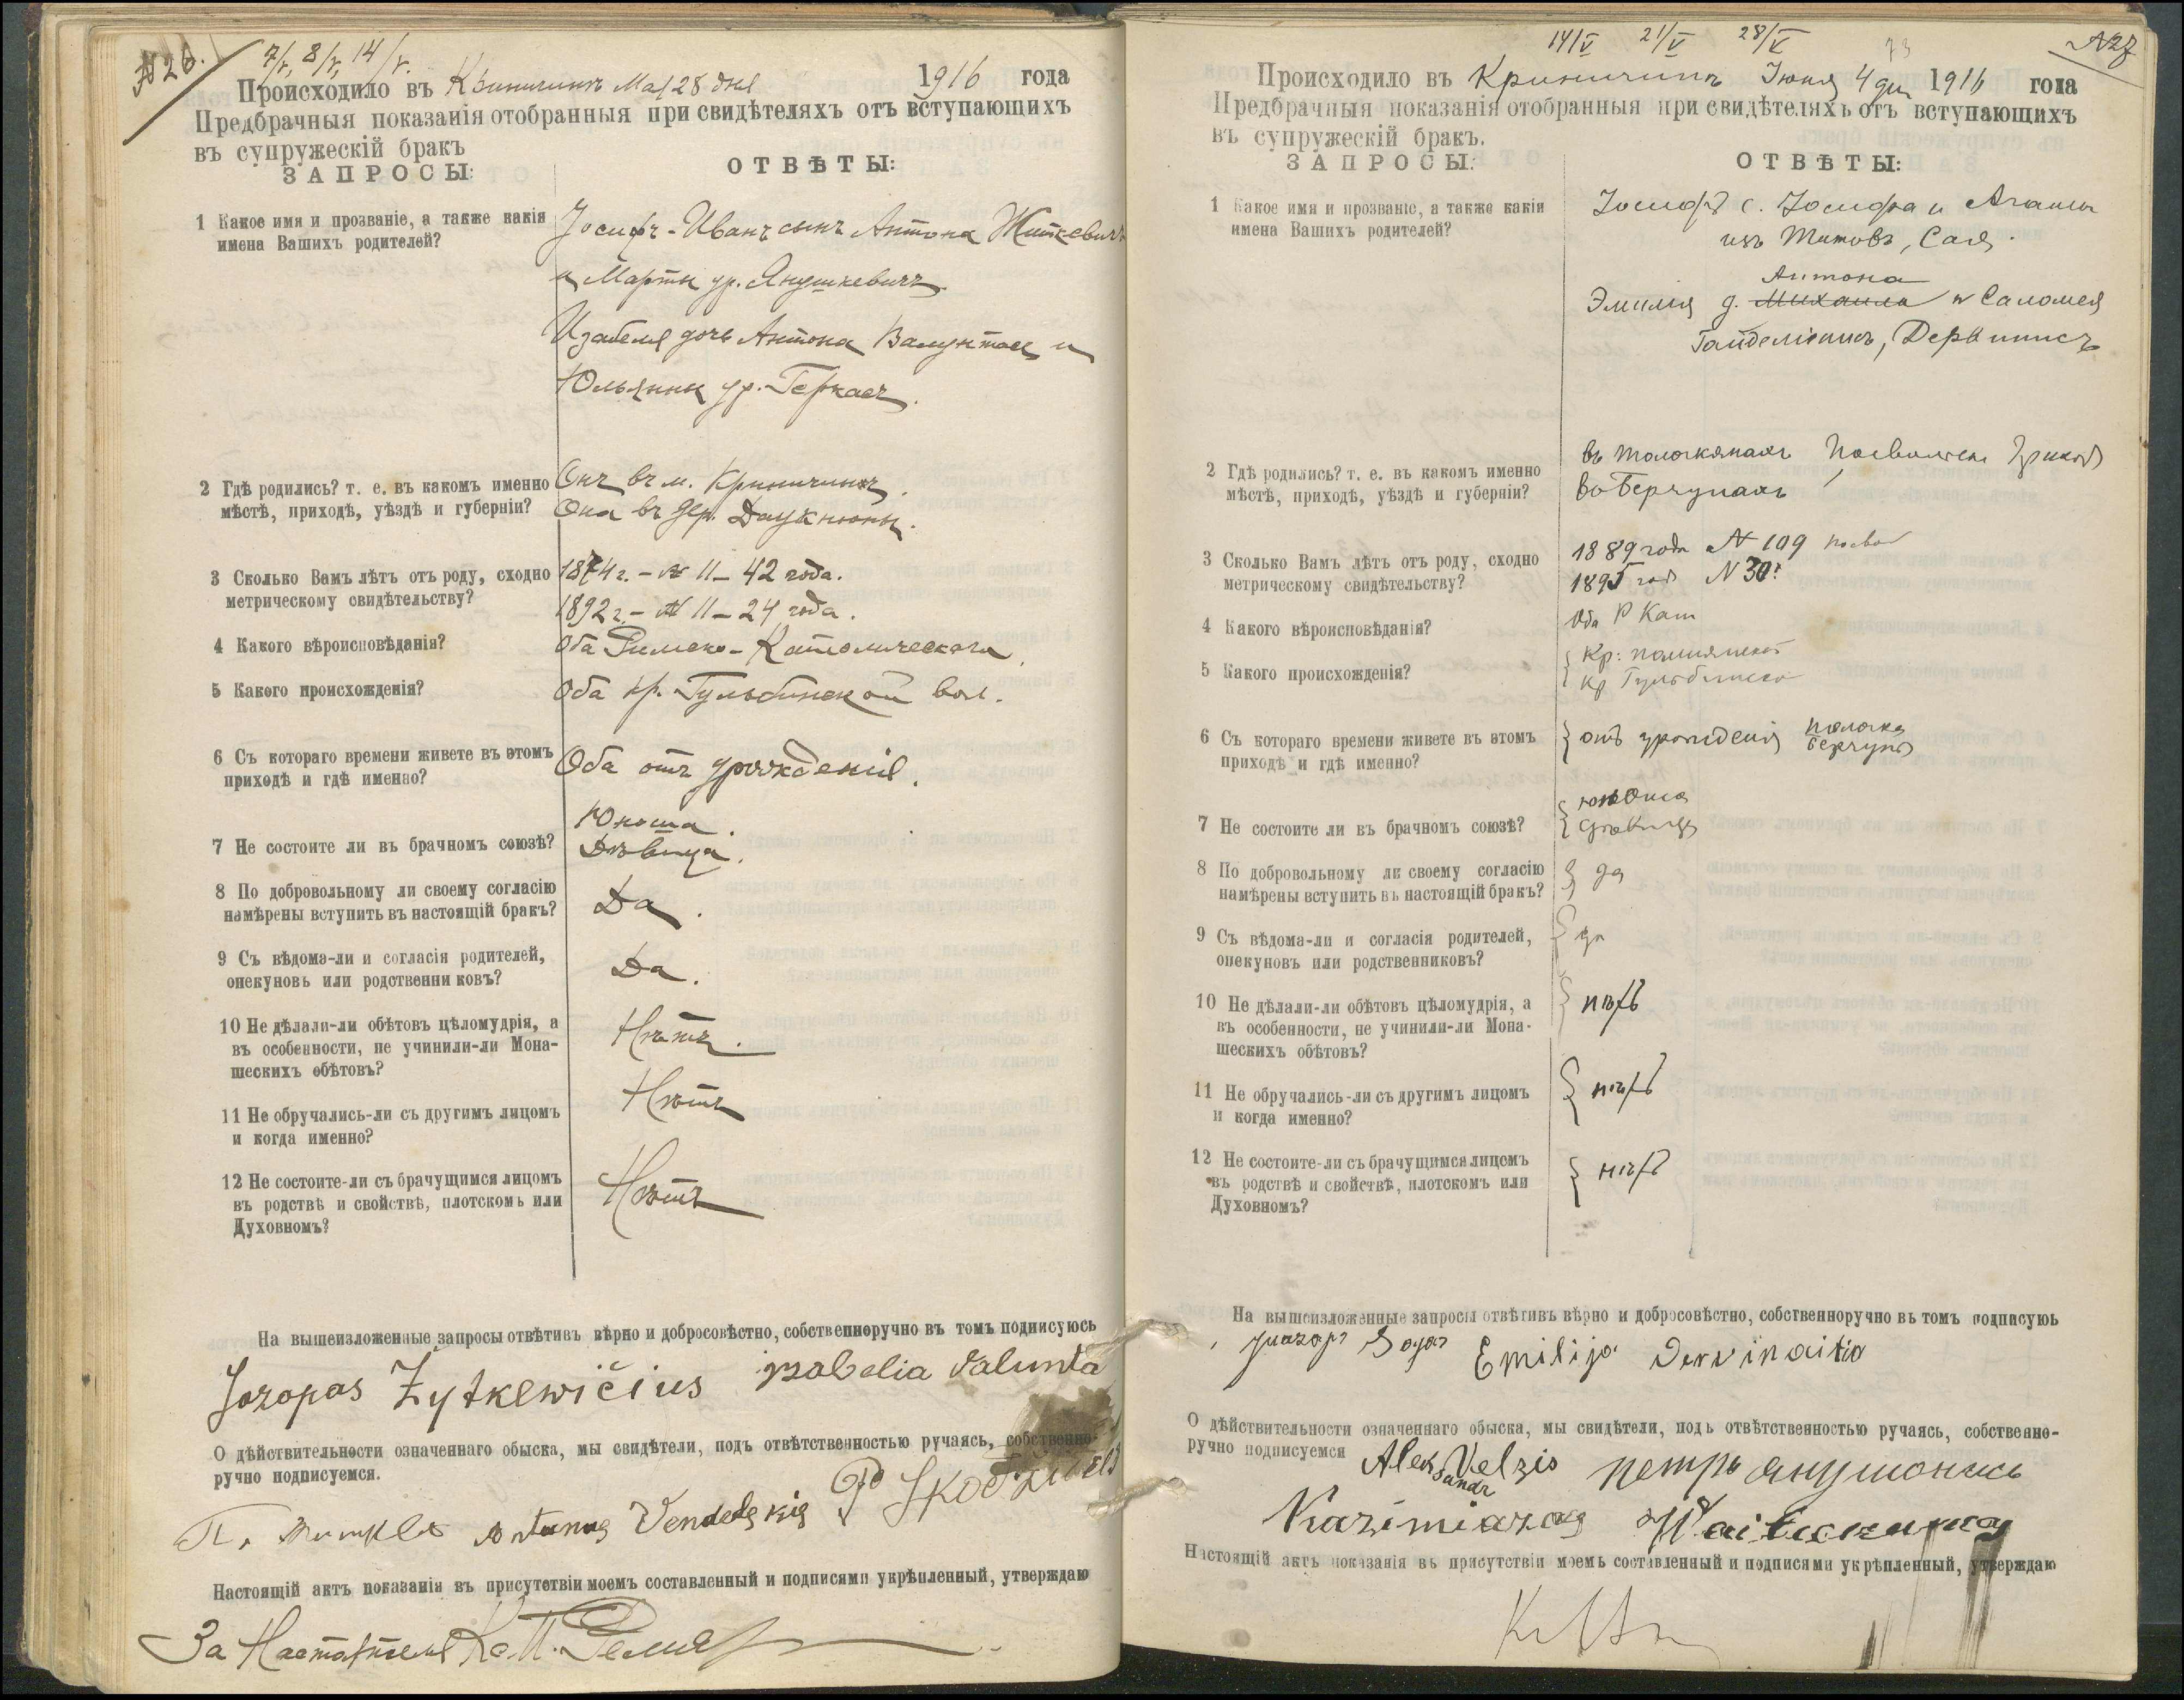 № 26.
7/V, 8/V, 14/V.
Происходило въ Криничинъ Мая 28 дня 1916 года
Предбрачныя показанія отобранныя при свидѣтеляхъ отъ вступающихъ
въ супружескій бракъ
ЗАПРОСЫ: ОТВѢТЫ:
1 Какое имя и прозваніе, а также какія
имена Вашихъ родителей?
Іосифъ-Иванъ сынъ Антона Житкевичъ
и Марты ур. Янушкевичъ.
Изабеля дочь Антона Валунтас и
Юльянны ур. Геркасъ.
2 Гдѣ родились? т. е. въ какомъ именно
мѣстѣ, приходѣ, уѣздѣ и губерніи?
Онъ въ м. Криничинъ.
Она въ дер. Даукнюны.
3 Сколько Вамъ лѣтъ отъ роду, сходно
метрическому свидѣтельству?
1874 г. - № 11 - 42 года.
1892 г. - № 11 - 24 года.
4 Какого вѣроисповѣданія?
Оба Римско-Католическаго
5 Какого происхожденія?
Оба кр. Гульбинской вол.
6 Съ котораго времени живете въ этомъ
приходѣ и гдѣ именно?
Оба отъ урожденія.
7 Не состоите ли въ брачномъ союзѣ?
Юноша.
Дѣвица.
8 По добровольному ли своему согласію
намѣрены вступить въ настоящій бракъ?
Да.
9 Съ вѣдома-ли и согласія родителей,
опекуновъ или родственни ковъ?
Да.
10 Не дѣлали-ли обѣтовъ цѣломудрія, а
въ особенности, не учинили-ли Мона-
шескихъ обѣтовъ?
Нѣтъ.
11 Не обручались-ли съ другимъ лицомъ
и когда именно?
Нѣтъ
12 Не состоите-ли съ брачущимся лицомъ
въ родствѣ и свойствѣ, плотскомъ или
Духовномъ?
Нѣтъ
На вышеизложенные запросы отвѣтивъ вѣрно и добросовѣстно, собственноручно въ томъ подписуюсь
Jozopas Żytkewičius Izabelia Valunta
О дѣйствительности означеннаго обыска, мы свидѣтели, подъ отвѣтственностью ручаясь, собственно-
ручно подписуемся.
П. Antanas
Настоящій актъ показанія въ присутствіи моемъ составленный и подписями укрѣпленный, утверждаю
За Настоятеля
14/V 21/V 28/V
73
№ 27
Происходило въ Криничинъ Іюня 4 дня 1916 года
Предбрачныя показанія отобранныя при свидѣтеляхъ отъ вступающихъ
въ супружескій бракъ.
ЗАПРОСЫ: ОТВѢТЫ:
1 Какое имя и прозваніе, а также какія
имена Вашихъ родителей?
Іосифъ с. Іосифа и Агаты
изъ
Антона
Эмилія д. Михаила и Саломея
Дервинисъ
2 Гдѣ родились? т. е. въ какомъ именно
мѣстѣ, приходѣ, уѣздѣ и губерніи?
въ
въ Берчунахъ
3 Сколько Вамъ лѣтъ отъ роду, сходно
метрическому свидѣтельству?
1889 года № 109
1895 год № 30
4 Какого вѣроисповѣданія?
Оба Р Кат
5 Какого происхожденія?
Кр:
кр Гульбинско
6 Съ котораго времени живете въ этомъ
приходѣ и гдѣ именно?
отъ урожденія
7 Не состоите ли въ брачномъ союзѣ?
юноша
дѣвица
8 По добровольному ли своему согласію
намѣрены вступить въ настоящій бракъ?
да
9 Съ вѣдома-ли и согласія родителей,
опекуновъ или родственниковъ?
да
10 Не дѣлали-ли обѣтовъ цѣломудрія, а
въ особенности, не учинили-ли Мона-
шескихъ обѣтовъ?
нѣтъ
11 Не обручались-ли съ другимъ лицомъ
и когда именно?
нѣтъ
12 Не состоите-ли съ брачущимся лицомъ
въ родствѣ и свойствѣ, плотскомъ или
Духовномъ?
нѣтъ
На вышеизложенные запросы отвѣтивъ вѣрно и добросовѣстно, собственноручно въ томъ подписуюь
Emilija Dervinaitia
О дѣйствительности означеннаго обыска, мы свидѣтели, подъ отвѣтственностью ручаясь, собственно-
ручно подписуемся
Aleksandr Velzis петръ янушонисъ
Kazimiaras
Настоящій актъ показанія въ присутствіи моемъ составленный и подписями укрѣпленный, утверждаю